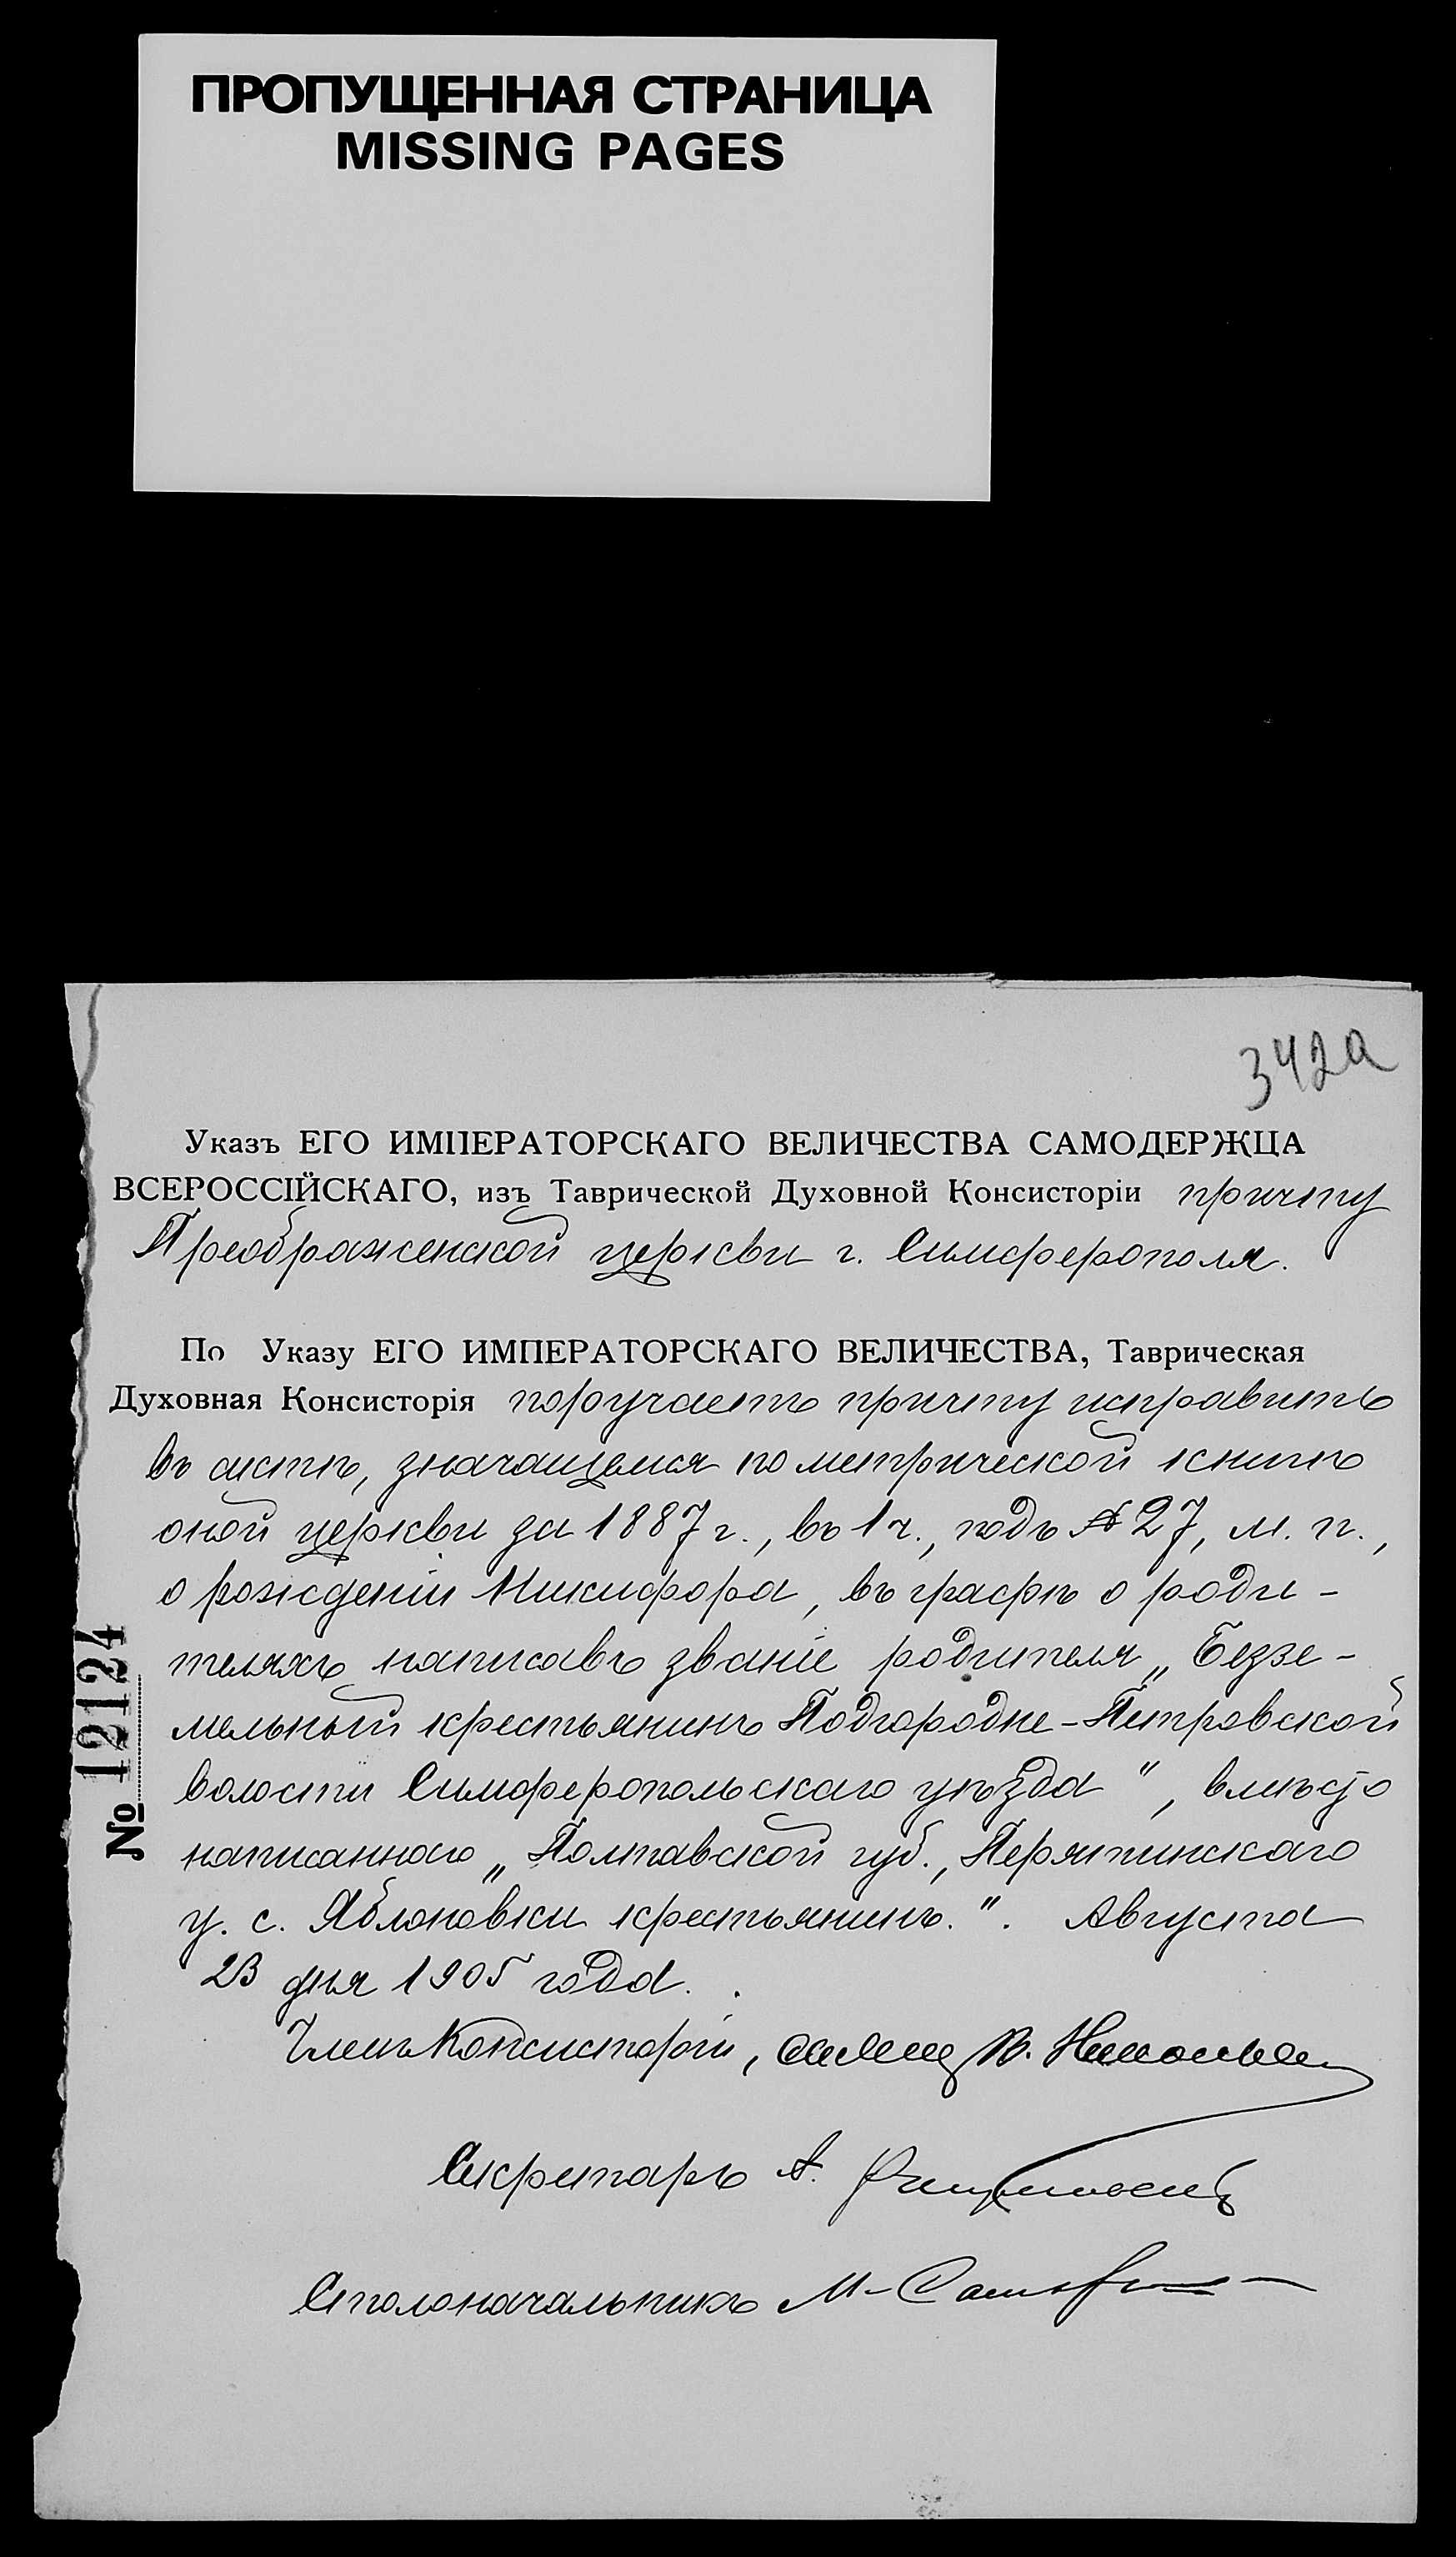 ПРОПУЩЕННАЯ СТРАНИЦА
MISSING PAGES
342а
Указъ ЕГО ИМПЕРАТОРСКАГО ВЕЛИЧЕСТВА САМОДЕРЖЦА
ВСЕРОССІЙСКАГО, изъ Таврической Духовной Консисторіи причту
Преображенской церкви г. Симферополя.
По Указу ЕГО ИМПЕРАТОРСКАГО ВЕЛИЧЕСТВА, Таврическая
Духовная Консисторія поручаетъ причту исправить
въ актѣ, значащемся по метрической книгѣ
оной церкви за 1887 г., въ 1 ч., подъ № 27, м. п.,
о рожденіи Никифора, въ графѣ о роди-
теляхъ написавъ званіе родителя „Беззе-
мельный крестьянинъ Подгородне-Петровской
волости Симферопольскаго уѣзда", вмѣсто
написаннаго „Полтавской губ., Пирятинскаго
у. с. Яблоновки крестьянинъ.". Августа
23 дня 1905 года.
Членъ Консисторіи,
Секретарь А.
Столоначальникъ М.
№ 12124